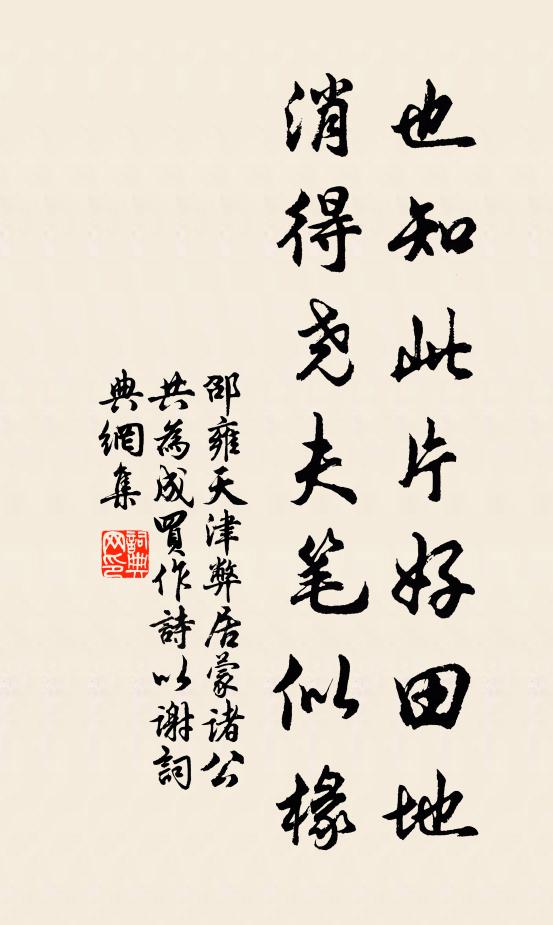 也知此片好田地
消得尧夫笔似椽
邵雍天津弊居蒙诸公
共為成買作詩以谢詞
典網集
詞典
网印